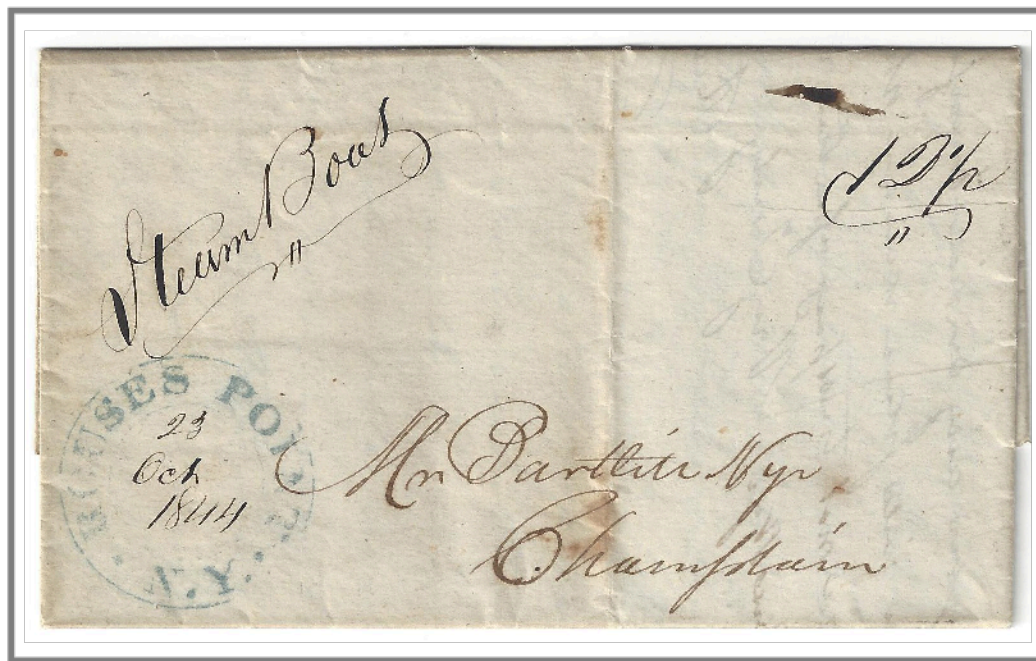 Steam Boat
ROUSES POINT
N.Y.
23
Oct
1844
Mr Bartlett Nye
Champlain